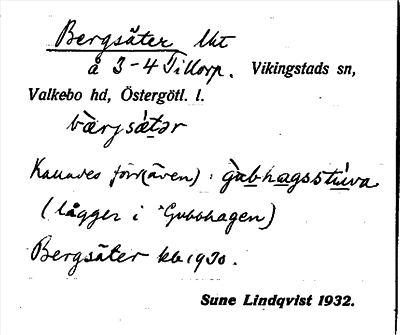 Bergsäter lht
å 3-4 Tillorp. Vikingstads sn,
Valkebo hd, Östergötl. l.
bàrjsá̱tər
Kallades förr (även): gu̱bha̱gsstú̱va
(lägger i "Gubbhagen)
Bergsäter kb 1930.
Sune Lindqvist 1932.